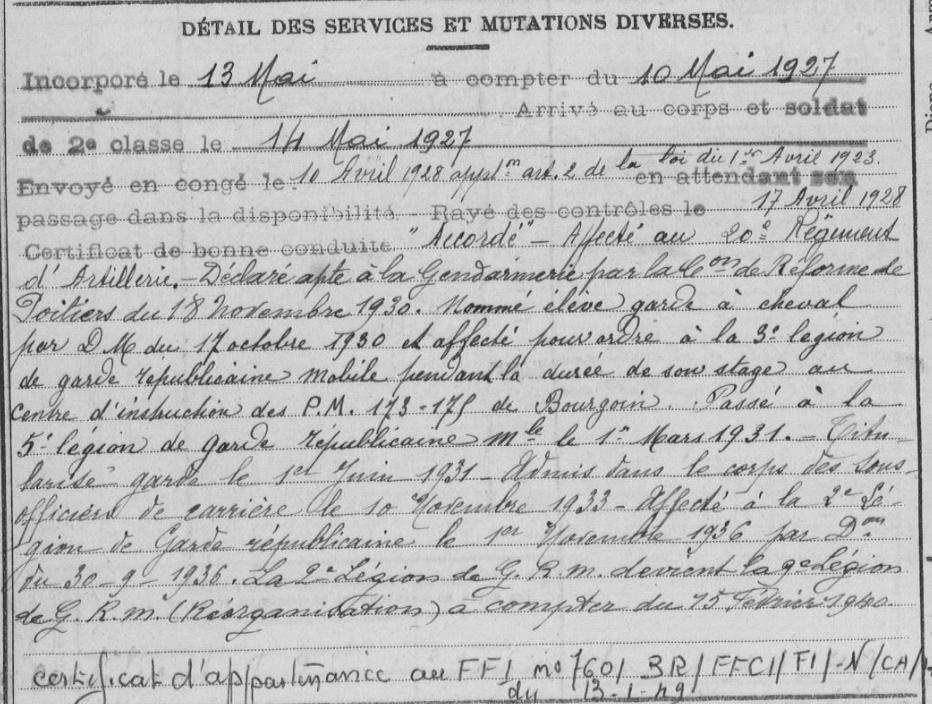 DÉTAIL DES SERVICES ET MUTATIONS DIVERSES.
Incorporé le 13 Mai à compter du 10 Mai 1927
Arrivé au corps et soldat
de 2e classe le 14 Mai 1927
Envoyé en congé le 10 Avril 1928 appt.m art. 2 de la loi du 1er Avril 1923. en attendant son
passage dans la disponibilité - Rayé des contrôles le 17 Avril 1928
Certificat de bonne conduite "Accordé" - Affecté au 20e Régiment
d'Artillerie. - Déclaré apte à la Gendarmerie par la Con de Réforme de
Poitiers du 18 Novembre 1930. Nommé élève garde à cheval
par D M du 17 octobre 1930 et affecté pour ordre à la 3e légion
de garde républicaine mobile pendant la durée de son stage au
Centre d'instruction des P.M. 173-175 de Bourgoin. Passé à la
5e légion de garde républicaine Mle le 1er Mars 1931. - Titu-
larisé garde le 1er Juin 1931 - Admis dans le corps des sous-
officiers de carrière le 10 Novembre 1933 - Affecté à la 2e Lé-
gion de Garde républicaine le 1er Novembre 1936 par Don
du 30-9-1936. La 2e Légion de G.R.m. devient la 9e Légion
de G.R.m (Réorganisation) à compter du 15 Février 1940.
certificat d'appartenance au FFI no 7601 3R/FFCI/FI/-N/CA/
du 13-1-49